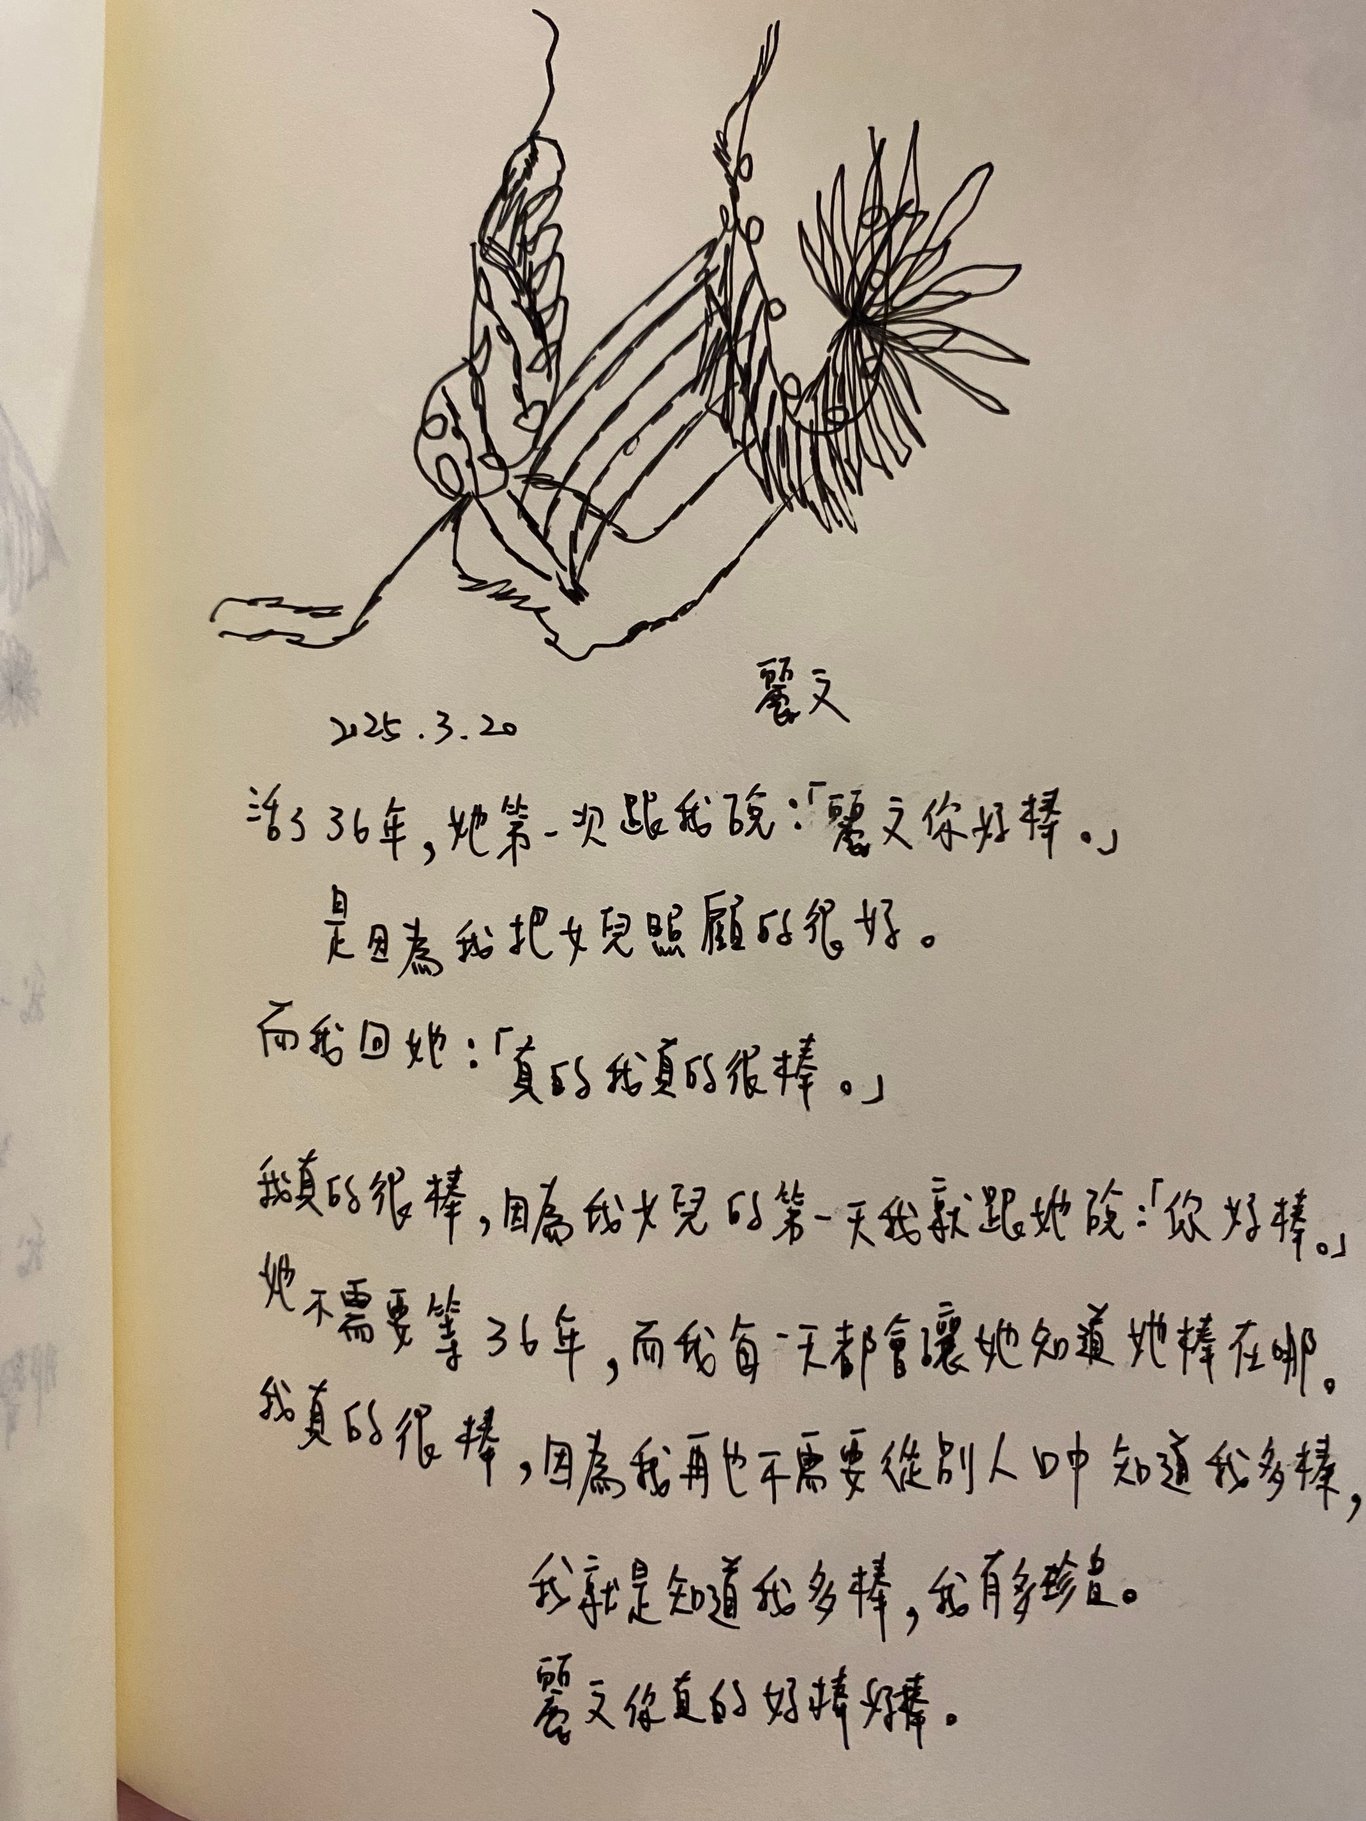 麗文
2025.3.20
活了36年，她第一次跟我說：「麗文你好棒。」
是因為我把女兒照顧的很好。
而我回她：「真的我真的很棒。」
我真的很棒，因為我女兒的第一天我就跟她說：「你好棒。」
她不需要等36年，而我每一天都會讓她知道她棒在哪。
我真的很棒，因為我再也不需要從別人口中知道我多棒，
我就是知道我多棒，我有多珍貴。
麗文你真的好棒好棒。